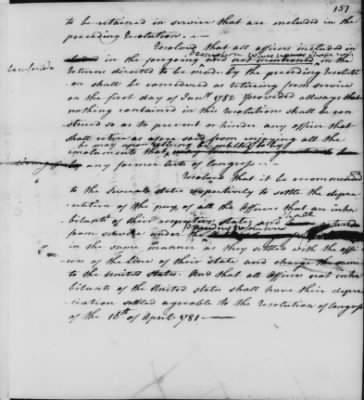 151
to be retained in service that are included in the
preceding Resolution. —
Resolved that all officers included in
description whose names shall not
in the foregoing and not mentioned in the
returns directed to be made by the preceding Resoluti
-on shall be considered as retiring from service
on the first day of Jany 1782 Provided allways that
nothing contained in this Resolution shall be con
strued so as to prevent or hinder any officer that
shall retire as afore said from enjoying all the
he may be entitled to by
emoluments that
by any former acts of Congress —
Resolved that it be recommended
to the several states respectively to settle the depre
-ciation of the pay of all the officers that are inha
bitants of their respective states and shall
from service under the
in the same manner as they settled with the offi
-cers of the line of their state and charge the
to the United States. And that all officers not inha
bitants of the United States shall have their depre
-ciation settled agreable to the Resolution of Congress
of the 10th of April 1781 —